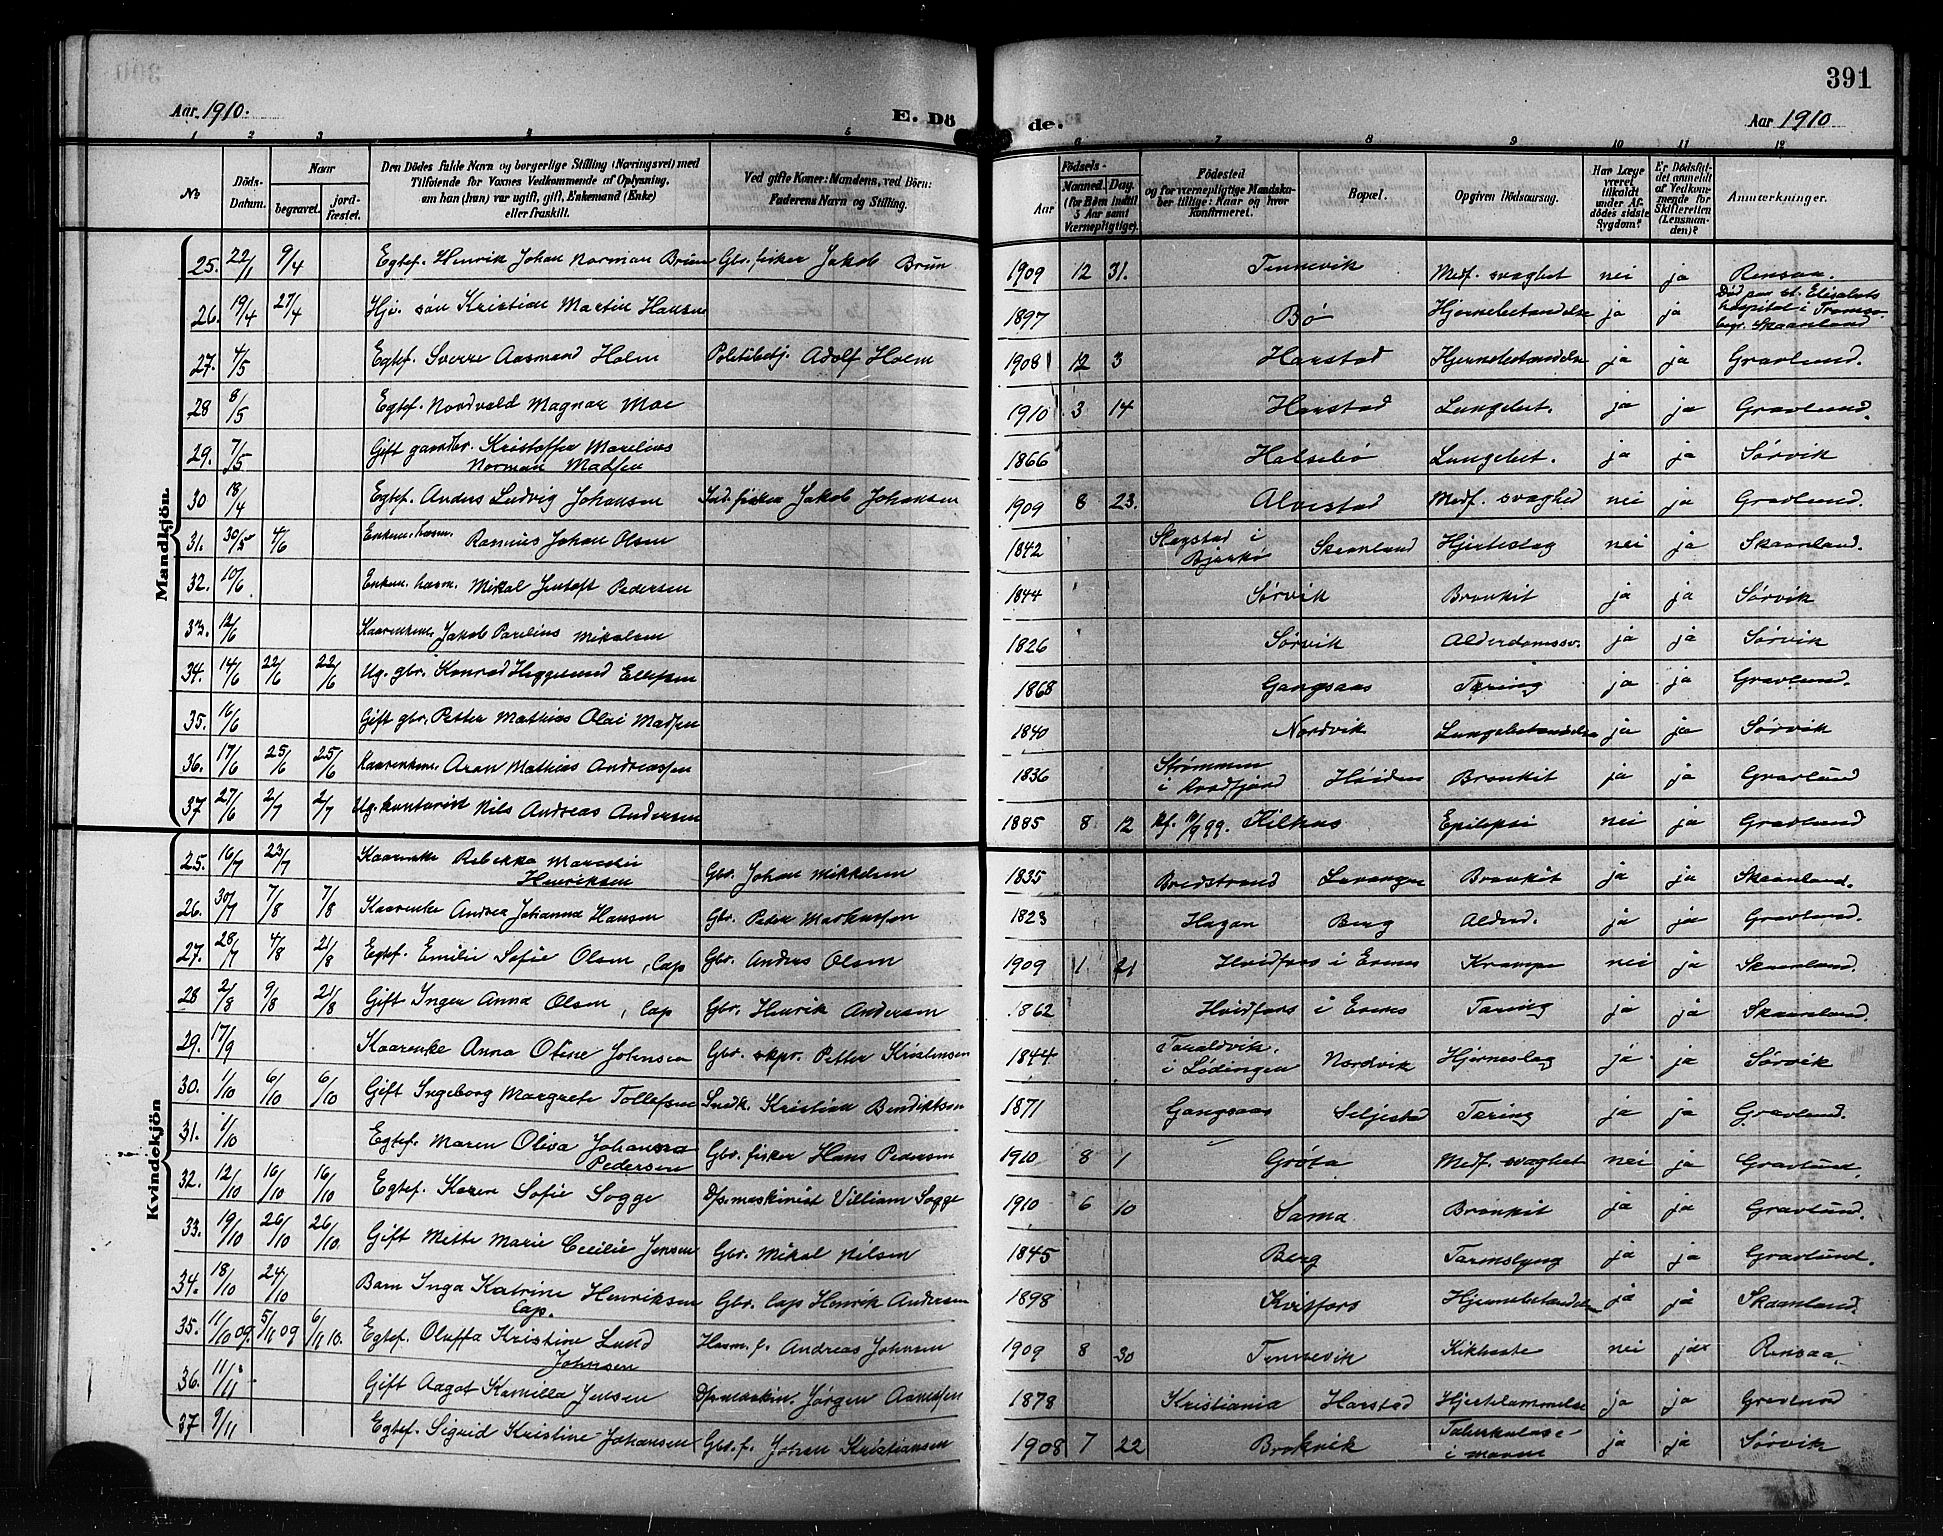 391
Aar 1910.
E. Dö
de.
Aar 1910
1 2 3 4 5 6 7 8 9 10 11 12
No
Döds-Datum.
Naar
begravet.
jord-fæstet.
Den Dödes fulde Navn og borgerlige Stilling (Næringsvei) med
Tilföiende for Voxnes Vedkommende af Oplysning,
om han (hun) var ugift, gift, Enkemand (Enke)
eller fraskilt.
Ved gifte Koner: Mandens, ved Börn:
Faderens Navn og Stilling.
Födsels-
Aar
Maaned. Dag.
(for Börn indtil
5 Aar samt
Værnepligtige).
Födested
og for værnepligtige Mandska-
ber tillige: Naar og hvor
Konfirmeret.
Bopæl.
Opgiven Dödsaarsag.
Har Læge
været
tilkaldt
under Af-
dödes sidste
Sygdom?
Er Dödsfal-
det anmeldt
af Vedkom-
mende for
Skifteretten
(Lensman-
den)?
Anmærkninger.
Mandkjön.
25. 22/1 9/4 Egtef. Henrik Johan Norman Brun Gbr. fisker Jakob Brun 1909 12 31. Tennevik Medf. svaghet nei ja Rensaa.
26. 19/4 27/4 Hjv. søn Kristian Martin Hansen 1897 Bø Hjernebetændelse ja ja Død paa st. Elisabets
hospital i Tromsø
begr. Skaanland
27. 4/5 Egtef. Sverre Aasmund Holm Politibetj. Adolf Holm 1908 12 3 Harstad Hjernebetændelse ja ja Gravlund.
28 8/5 Egtef. Nordvald Magnar Moe 1910 3 14 Harstad Lungebet. ja ja Gravlund.
29. 7/5 Gift gaardbr. Kristoffer Marelius
Norman Madsen 1866 Halsebø Lungebet. ja ja Sørvik
30 18/4 Egtef. Anders Ludvig Johansen Ind. fisker Jakob Johansen 1909 8 23. Alvestad Medf. svaghed nei ja Gravlund.
31. 30/5 4/6 Enkem. husm. Rasmus Johan Olsen 1842 Slagstad i
Bjarkø Skaanland Hjerteslag nei ja Skaanland.
32. 10/6 Enkem. husm. Mikal Jentoft Pedersen 1844 Sørvik Bronkit ja ja Sørvik
33. 12/6 Kaarenkem. Jakob Parelius Mikalsen 1826 Sørvik Alderdomssv. ja ja Sørvik
34. 14/6 22/6 22/6 Ug. gbr. Konrad Heggelund Ellefsen 1868 Gangsaas Tæring ja ja Gravlund.
35. 16/6 Gift gbr. Petter Mathias Olai Madsen 1840 Nordvik Lungebetændelse ja ja Sørvik
36. 17/6 25/6 25/6 Kaarenkem. Aron Mathias Andreassen 1836 Strømmen
i Kvædfjord Høiden Bronkit ja ja Gravlund
37 27/6 2/7 2/7 Ug. kontorist Nils Andreas Andersen 1885 8 12 Kf. 10/9 99. Kilhus Epilepsi nei ja Gravlund
Kvindekjön
25. 16/7 23/7 Kaarenke Rebekka
Henriksen Gbr. Johan Mikkelsen 1835 Bredstrand Lavangen Bronkit ja ja Skaanland.
26. 30/7 7/8 7/8 Kaarenke Andrea Johanna Hansen Gbr. Peder Markussen 1823 Hagan Berg Aldrd. ja ja Gravlund.
27. 28/7 4/8 21/8 Egtef. Emilie Sofie Olsen, Lap Gbr. Anders Olsen 1909 1 21 Hvidfors i Evenes Krampe nei ja Skaanland.
28 2/8 9/8 21/8 Gift Inger Anna Olsen, Lap Gbr. Henrik Andersen 1862 Hvidfors i Evenes Tæring ja ja Skaanland.
29. 17/9 Kaarenke Anna Oline Johnsen Gbr. skpr. Petter Kristensen 1844 Taraldvik.
i Lødingen Nordvik Hjerneslag ja ja Sørvik
30. 1/10 6/10 6/10 Gift Ingeborg Margrete Tollefsen Snedk. Kristian Bendiktsen 1871 Gangsaas Seljestad Tæring ja ja Gravlund.
31. 1/10 Egtef. Maren Oliva Johanna
Pedersen Gbr. fisker Hans Pedersen 1910 8 1 Grøtø Medf. svaghet nei ja Gravlund.
32. 12/10 16/10 16/10 Egtef. Karen Sofie Sogge Dpsmaskinist Villiam Sogge 1910 6 10 Sama Bronkit ja ja Gravlund.
33. 19/10 26/10 26/10. Gift Mette Marie Cecilie Jensen Gbr. Mikal Nilsen 1845 Berg Tarmslyng ja ja Gravlund.
34. 18/10 24/10 Barn Inga Katrine Henriksen
Lap. Gbr. Lap Henrik Andersen 1898 Kvitfors Hjernebetændelse ja ja Skaanland.
35. 11/10 09. 5/11 09 6/11 10. Egtef. Oluffa Kristine Lund
Johnsen Husm. f. Andreas Johnsen 1909 8 30 Tennevik Kikhoste nei ja Rensaa.
36. 11/11 Gift Aagot Kamilla Jensen Dpsmaskin. Jørgen Aamodsen 1878 Kristiania Harstad Hjertelammelse ja ja Gravlund
37 9/11 Egtef. Sigrid Kristine Johansen Gbr. f. Johan Kristiansen 1908 7 22 Brokvik Tuberkulose
i maven ja ja Sørvik